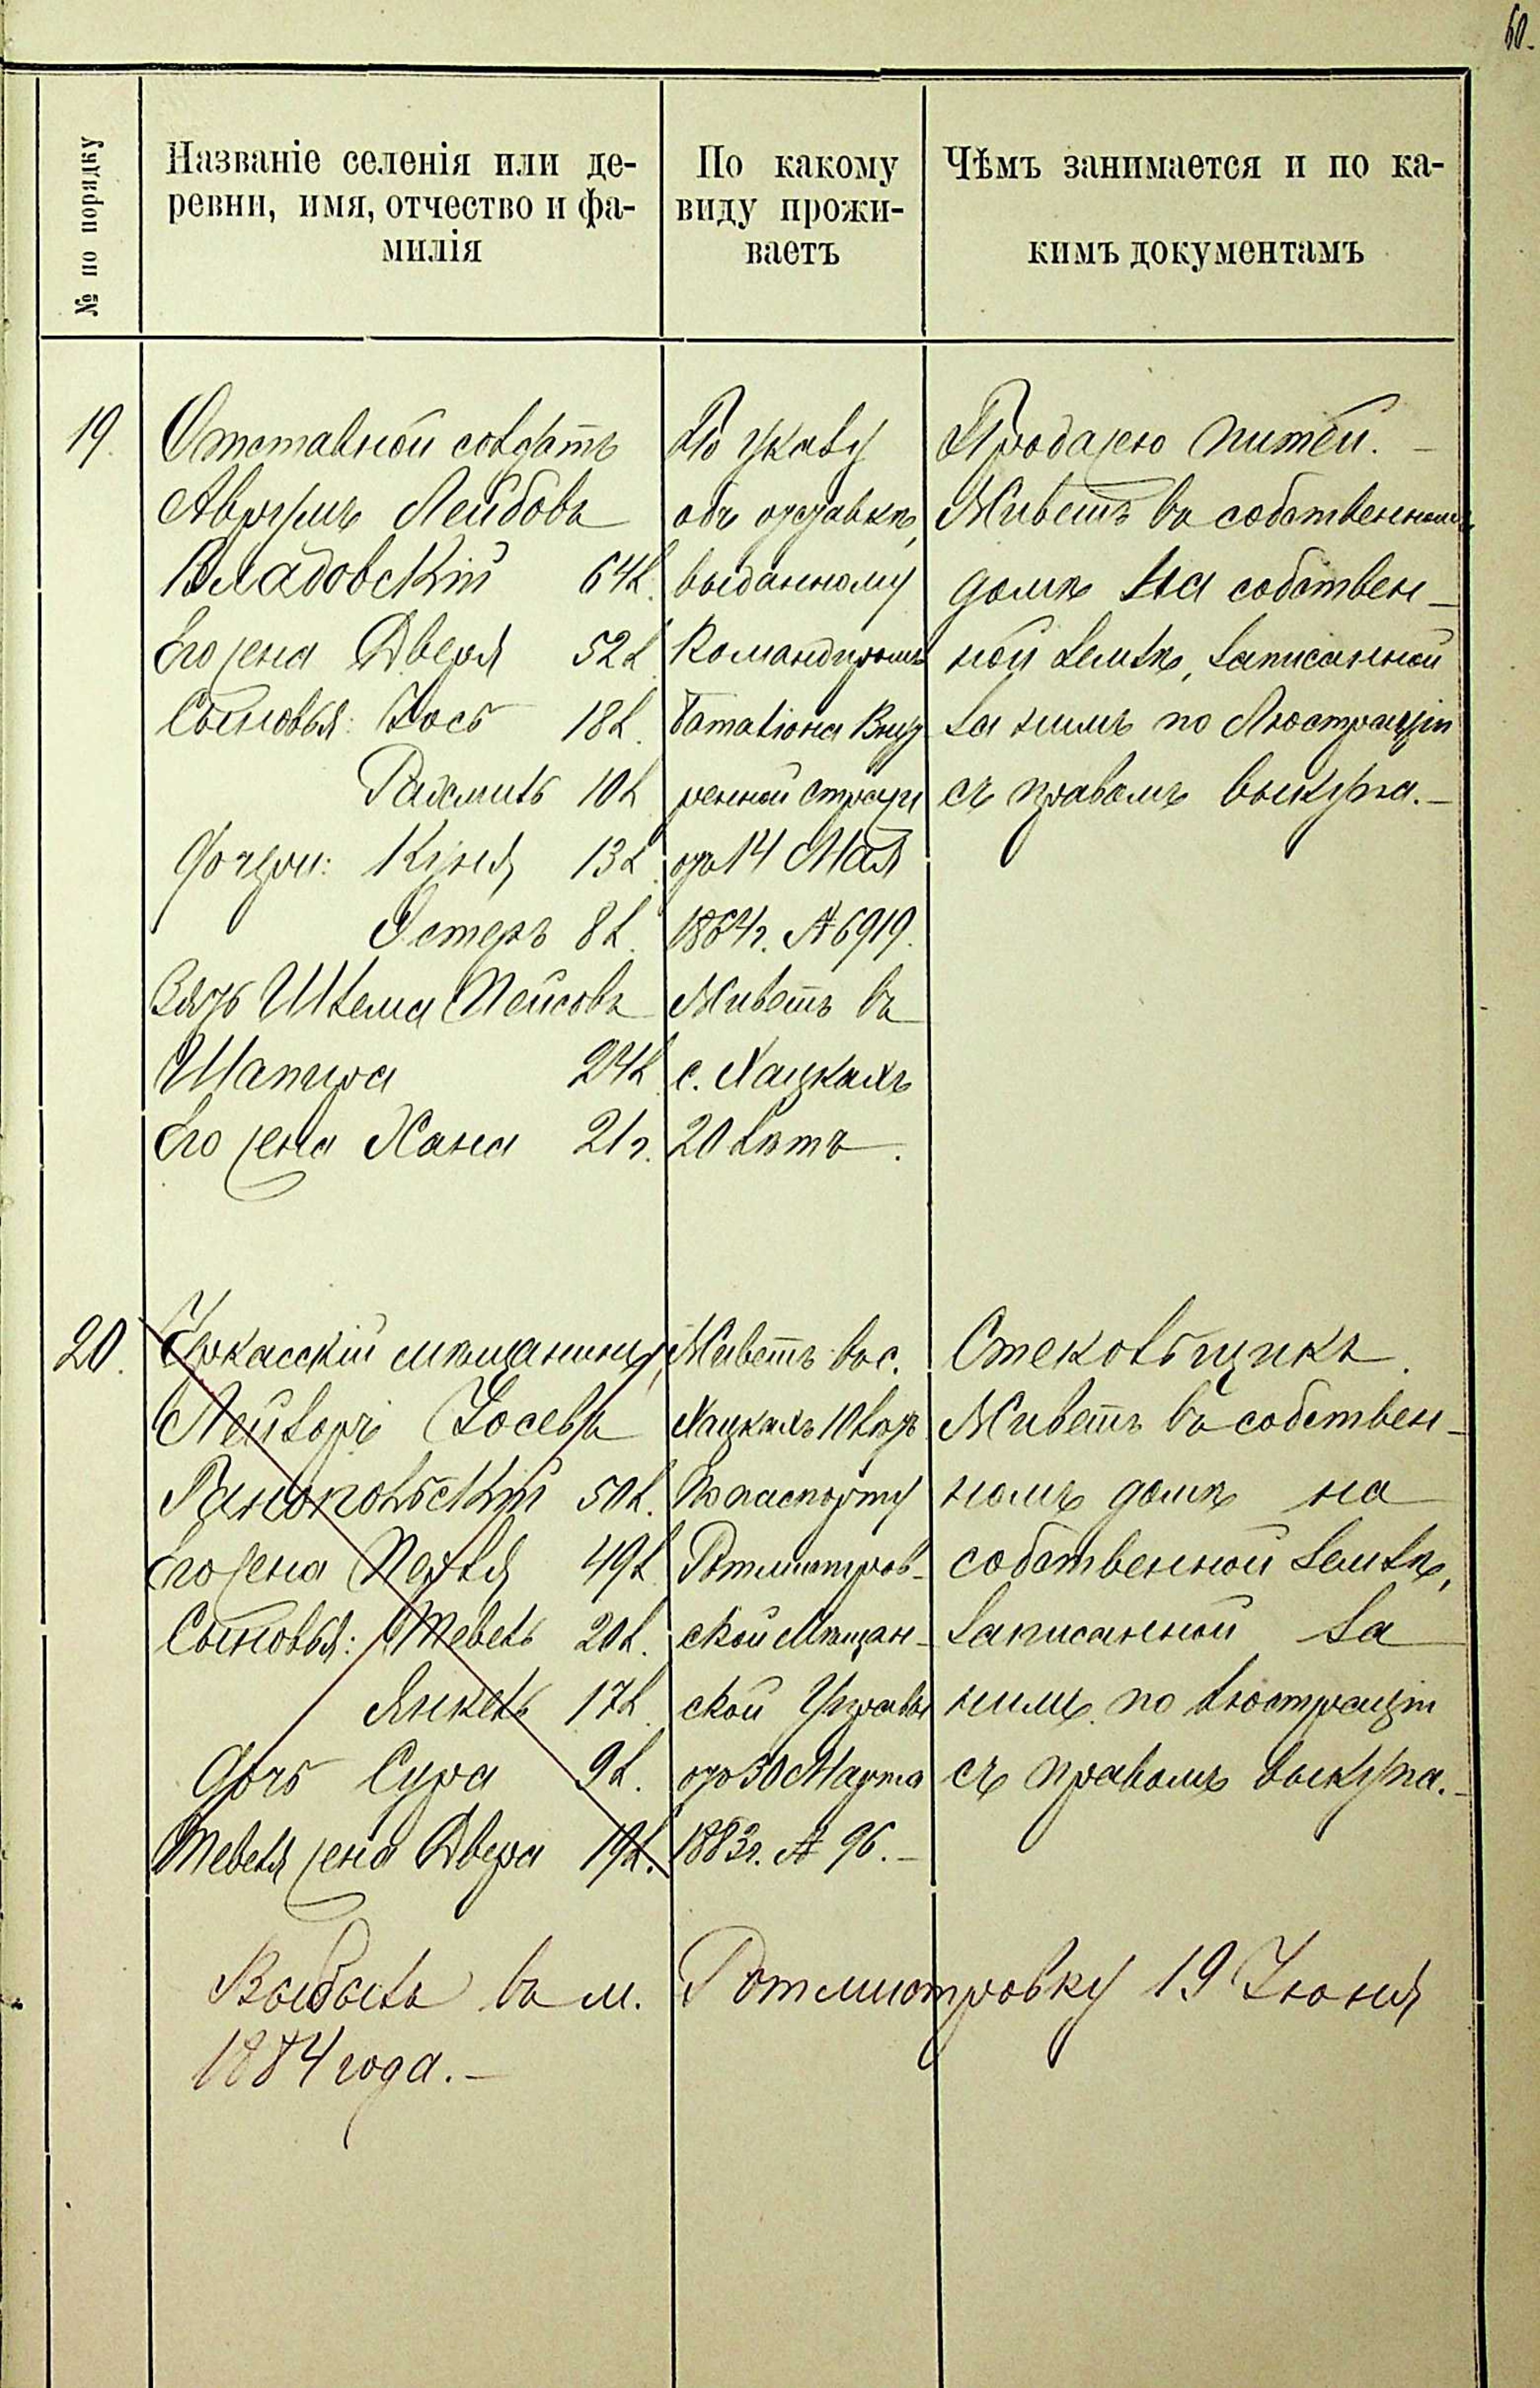 60.
№ по порядку
Названіе селенія или де-
ревни, имя, отчество и фа-
милія
По какому
виду прожи-
ваетъ
Чѣмъ занимается и по ка-
кимъ документамъ
19.
Отставной солдатъ
Аврумъ Лейбовъ
Владовскій 64 л.
Его жена Двейя 52 л.
Сыновья: Іось 18 л.
Рахмиль 10 л.
Дочери: Кіня, 13 л.
Эстеръ 8 л.
Зять Шлема Пейсовъ
Шапира 24 л.
Его жена Хана 21 г.
По указу
объ отставкѣ,
выданному
Командиромъ
баталіона Внут
ренней стражи
отъ 14 Мая
1864 г. № 6919.
Живетъ въ
с. Хацкахъ
20 лѣтъ.
Продажею питей. —
Живетъ въ собственномъ
домѣ на собствен-
ной землѣ, записанной
за нимъ по Люстраціи
съ правомъ выкупа. —
20.
Черкасскій мѣщанинъ,
Лейзоръ Іосевъ
50 л.
Его жена 49 л.
Сыновья: Тевель 20 л.
Янкель 17 л.
Дочь Сура 9 л.
Тевеля жена Двера 19 л.
Живетъ въ с.
Хацкахъ 10 лѣтъ
По паспорту
Ротмистров-
ской Мѣщан-
ской Управы
отъ 30 Марта
1883 г. № 96. —
Стекольщикъ.
Живетъ въ собствен-
номъ домѣ на
собственной землѣ,
записанной за
нимъ по люстраціи
съ правомъ выкупа. —
Выбылъ въ м. Ротмистровку 19 Іюня
1884 года. —